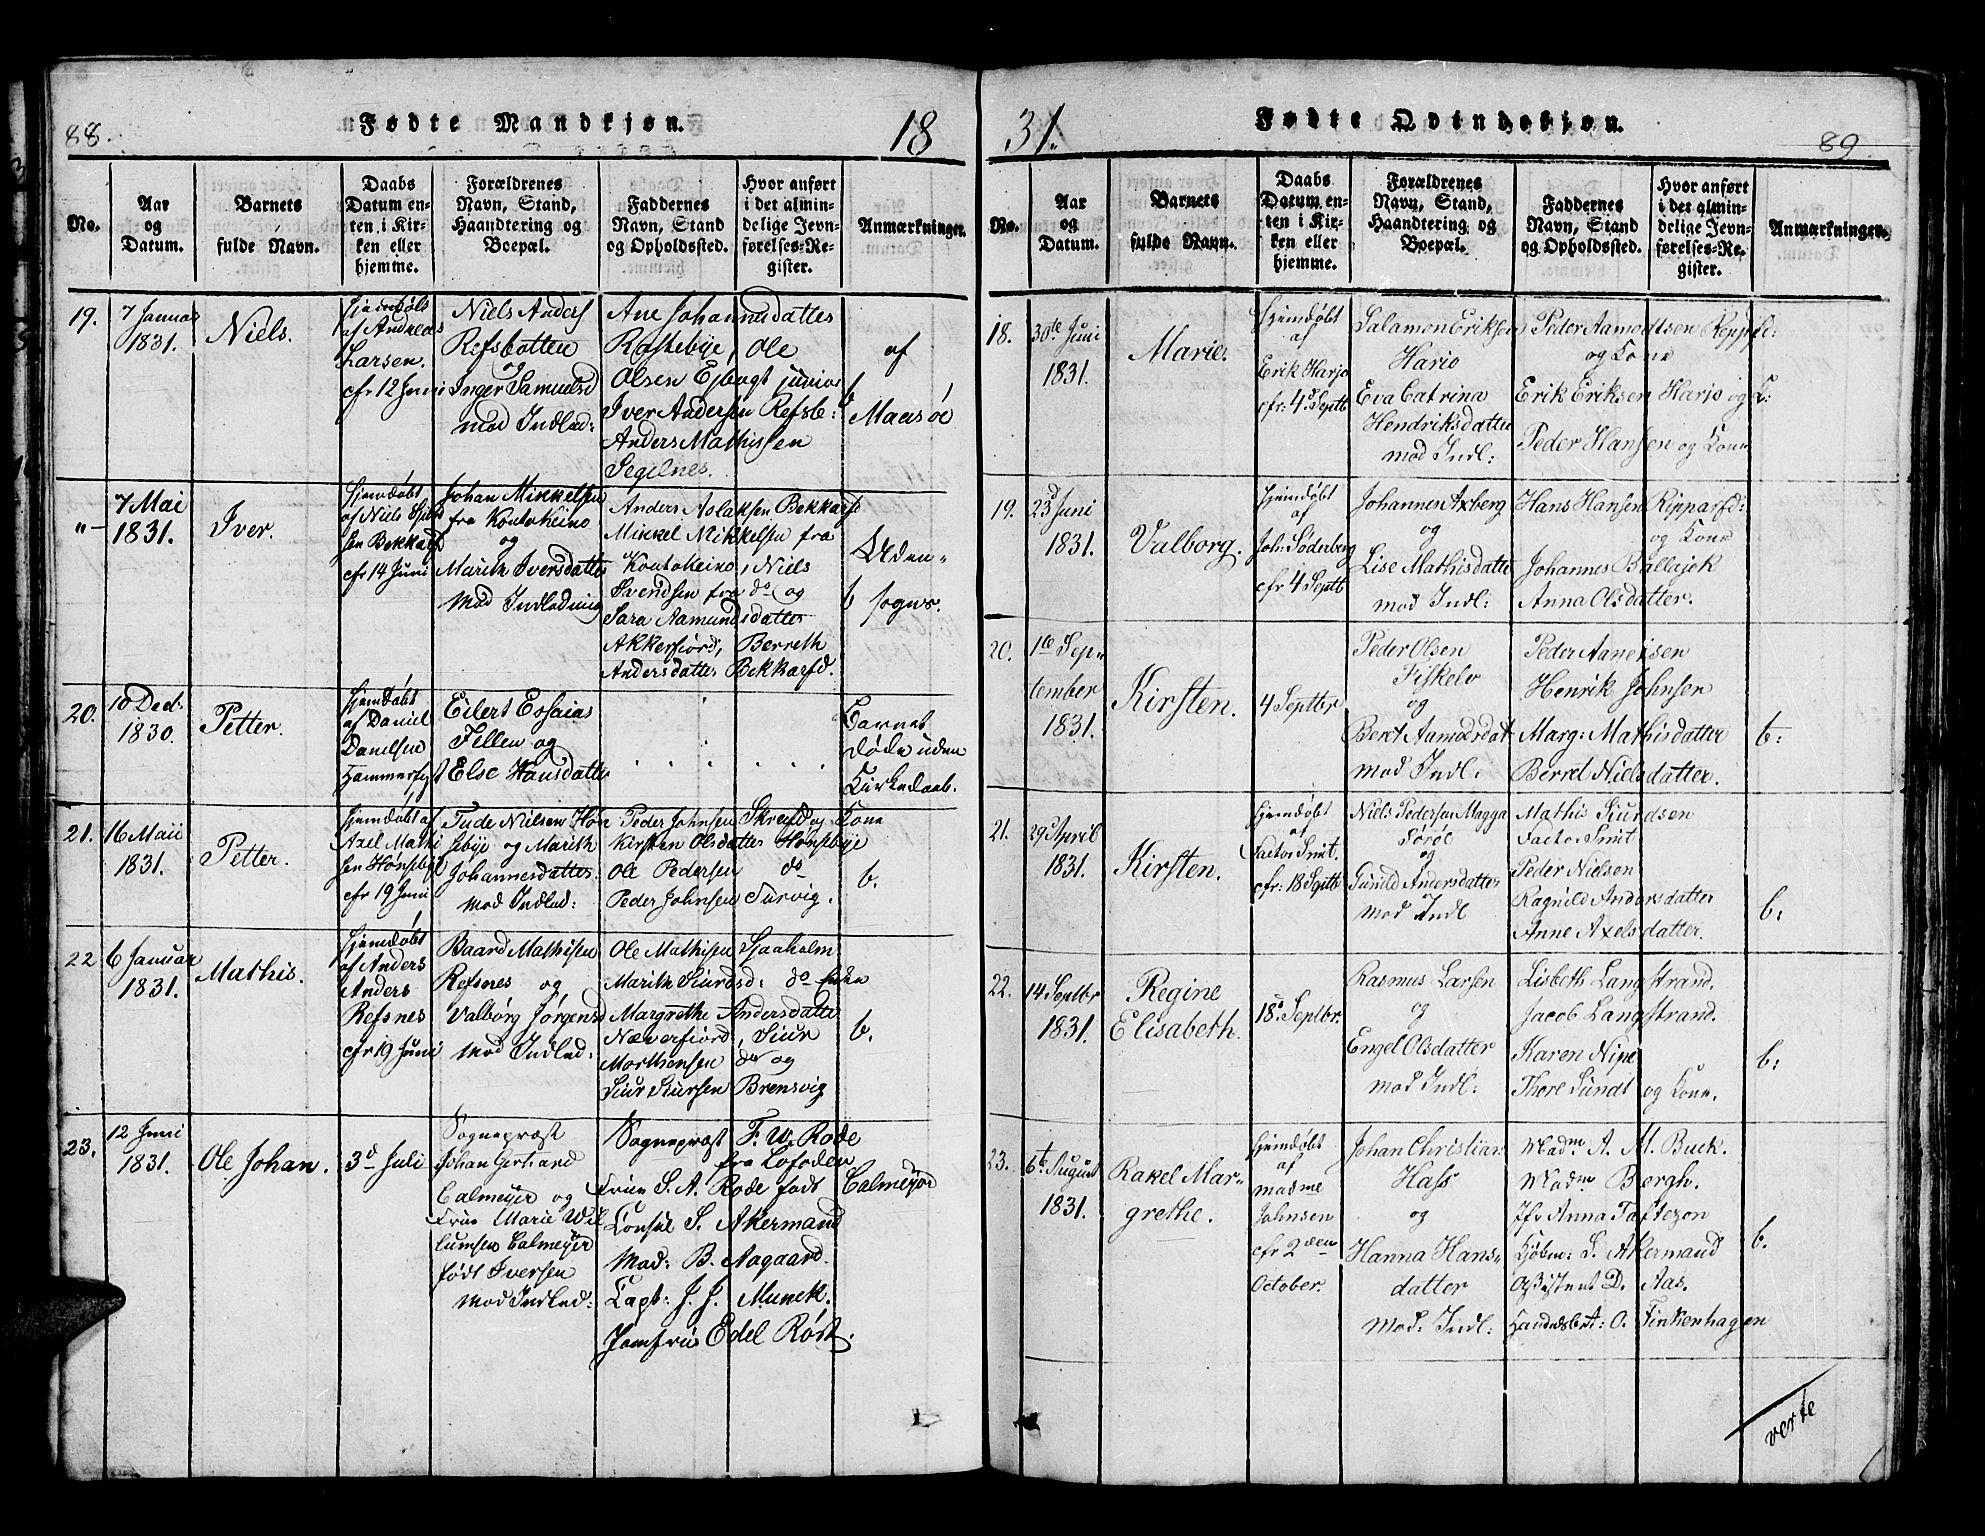 88.
Fødte Mandkjøn.
18
No.
Aar og Datum.
Barnets fulde Navn.
Daabs Datum enten i Kirken eller hjemme.
Forældrenes Navn, Stand, Haandtering og Boepæl.
Faddernes Navn, Stand og Opholdssted.
Hvor anført i det almindelige Jevnførelses-Register.
Anmærkninger.
19.
7 Januar
1831.
Niels.
Hjemdøbt
af Andreas
Larsen.
cfr 12 Juni
Niels Anders
Refsbotten
og
Inger Samuelsd
mod Indled:
Ane Johannisdatter
Rastebye, Ole
Olsen Ejbugt junior
Iver Andersen Refsb:
Anders Mathissen
Segelnes.
af
Maasøe
"-
7 Mai
1831.
Iver.
Hjemdøbt
af Niels
sen Bekkarfd
cfr 14 Juni
Johan Mikkelsen
fra Koutokeino
og
Marith Iversdatter
Mod Indledning
Anders Aslaksen Bekkarfd
Mikkel Mikkelsen fra
Koutokeino, Niels
Svendsen fra do og
Sara Aamundsdatter
Akkerfiord, Berreth
Andersdatter Bekkarfd.
b
Uden-
sogns.
20.
10 Decb.
1830.
Petter.
Hjemdøbt
af Daniel
Danielsen
Hammerfest
Eilert Essaias
Fellen og
Else Hansdatter
Barnet
døde uden
Kirkedaab.
21.
16 Maii
1831.
Petter.
Hjemdøbt af
Axel Mathi
sen Hønsebye
cfr 19 Juni
Tude Nielsen Høn
sebye og Marith
Johannesdatter.
Mod Indled:
Peder Johnsen Skreifd og Kone
Kirsten Olsdatter Hønsebye
Ole Pedersen do
Peder Johnsen Survig.
b.
22
6 Januar
1831.
Mathis.
Hjemdøbt
af Anders
Anders
Refsnes
cfr 19 Juni
Baard Mathisen
Refsnes og
Valborg Jørgensd
Mod Indled:
Ole Mathisen Sjaaholm
Marith Siursd: do Enke
Margrethe Andersdatter
Næverfiord, Siur
Morthensen do og
Siur Siursen Brensvig
b.
23.
12 Juni
1831.
Ole Johan.
3d Juli
Sognepræst
Johan Gertrand
Calmeyer og
Frue Marie Wil
lumsen Calmeyer
født Iversen
Mod Indled:
Sognepræst F. W. Rode
fra Lofoden
Frue S. A. Rode født Calmeyer
Consul S. Akermand
Mad: B. Aagaard.
Capt: J. J. Munck.
Jomfrue Edel Røst.
31.
Fødte Qvindekjøn.
89
No.
Aar og Datum.
Barnets fulde Navn.
Daabs Datum enten i Kirken eller hjemme.
Forældrenes Navn, Stand, Haandtering og Boepæl.
Faddernes Navn, Stand og Opholdssted.
Hvor anført i det almindelige Jevnførelses-Register.
Anmærkninger.
18.
30te Juni
1831.
Marie.
Hjemdøbt
af
Erik Harjo
cfr: 4d Septb
Salamon Eriksen
Hario
Eva Catrina
Hendriksdatter
mod Indl:
Peder Aamodtsen Reppfi:
og Kone
Erik Eriksen Harjo og K:
Peder Hansen og Kone
19.
23d Juni
1831.
Valborg.
Hjemdøbt
af
Joh: Søderberg
cfr 4 Septb
Johannes Axberg
og
Lise Mathisdatter
mod Indl:
Hans Hansen Ripparfd:
og Kone
Johannes Ballajok
Anna Olsdatter.
20.
1te Sep-
tember
1831.
Kirsten.
4 Septbr
Peder Olsen
Fiskelv
og
Beret Aamodsdat
mod Indl:
Peder Aanensen
Henrik Johnsen
Marg: Mathisdatter
Berret Nielsdatter.
b:
21.
29 April
1831.
Kirsten.
Hjemdøbt
af
Factor Smit.
cfr: 18 Septb
Niels Pedersen Magga
Sørøl
og
Gunild Andersdatter
mod Indl
Mathis Siurdsen
Factor Smit
Peder Nielsen
Ragnild Andersdatter
Anne Axelsdatter.
b:
22.
14 Septbr
1831.
Regine
Elisabeth.
18de Septbr.
Rasmus Larsen
og
Engel Olsdatter
mod Indl:
Lisbeth Langstrand.
Jacob Langstrand.
Karen Nipe
Thore Sundt og Kone.
b:
23.
6te August
1831.
Rakel Mar-
grethe.
Hjemdøbt
af
madme
Johnsen
cfr 2den
October.
Johan Christian
Hass
og
Hanna Hans-
datter
mod: Indl:
Madm A. M. Buck.
Madm Bergh.
Jfr Anna Taftezon
Kjøbm: S. Akermand
Assistent D. Aas.
Handelsbet: O. Finkenhagen
b.
verte